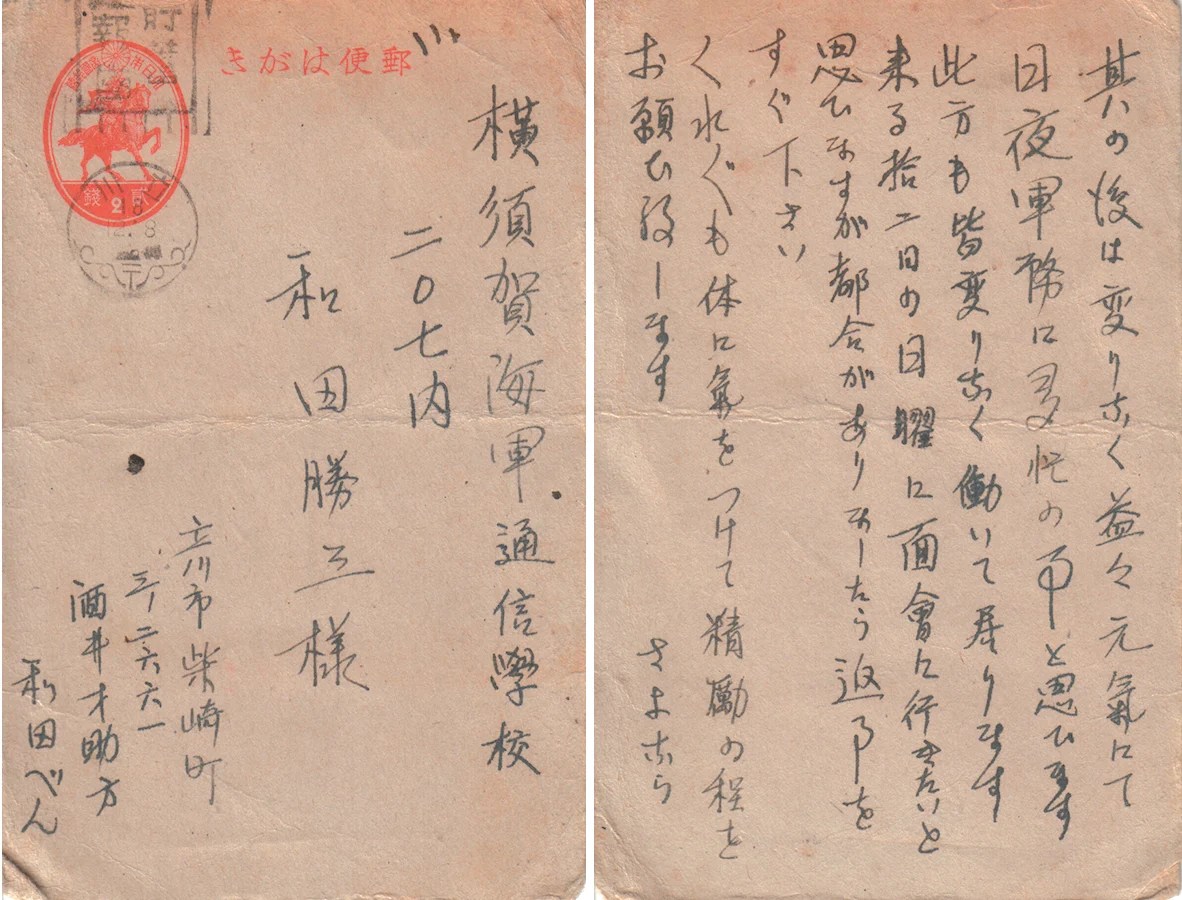 郵便はがき
大日本帝國郵便
貳錢
2
横須賀海軍通信學校
二〇七内
和田勝三様
立川市柴崎町
三ノ二六六一
酒井才助方
和田べん
其の後は変りなく益々元氣にて
日夜軍務に多忙の事と思ひます
此方も皆変りなく働いて居ります
来る拾二日の日曜に面會に行きたいと
思ひますが都合がありましたら返事を
すぐ下さい
くれぐも体に氣をつけて精励の程を
お願ひ致します
さよなら